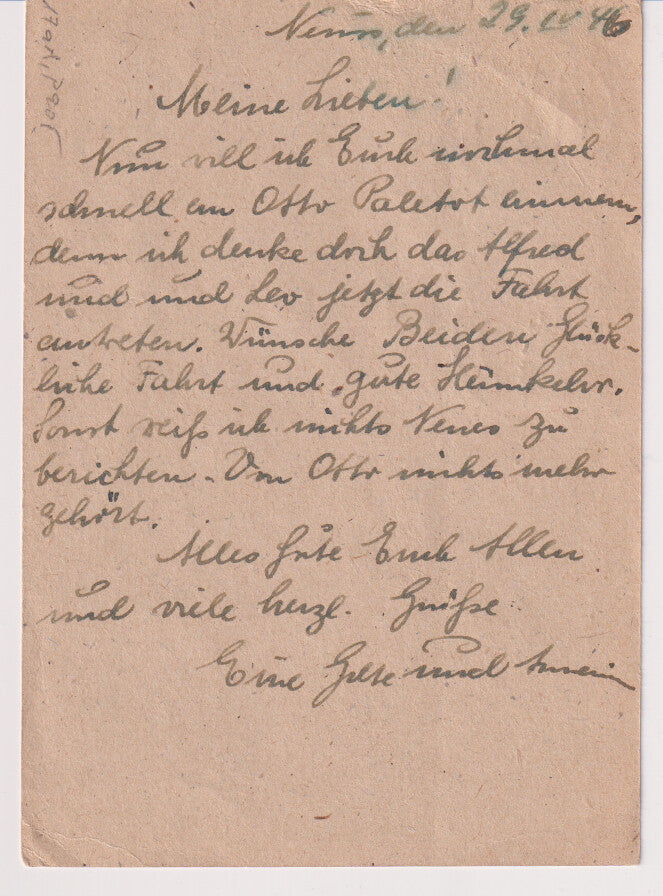 Neuss, den 29. IV 46
Meine Lieben!
Nun will ich Euch nochmal
schnell an Otto Paletot erinnern,
denn ich denke doch das Alfred
und und Leo jetzt die Fahrt
antreten. Wünsche Beiden Glück-
liche Fahrt und gute Heimkehr.
Sonst weiß ich nichts Neues zu
berichten. Von Otto nichts mehr
gehört.
Alles Gute Euch Allen
und viele herzl. Grüße
Eure Grete und